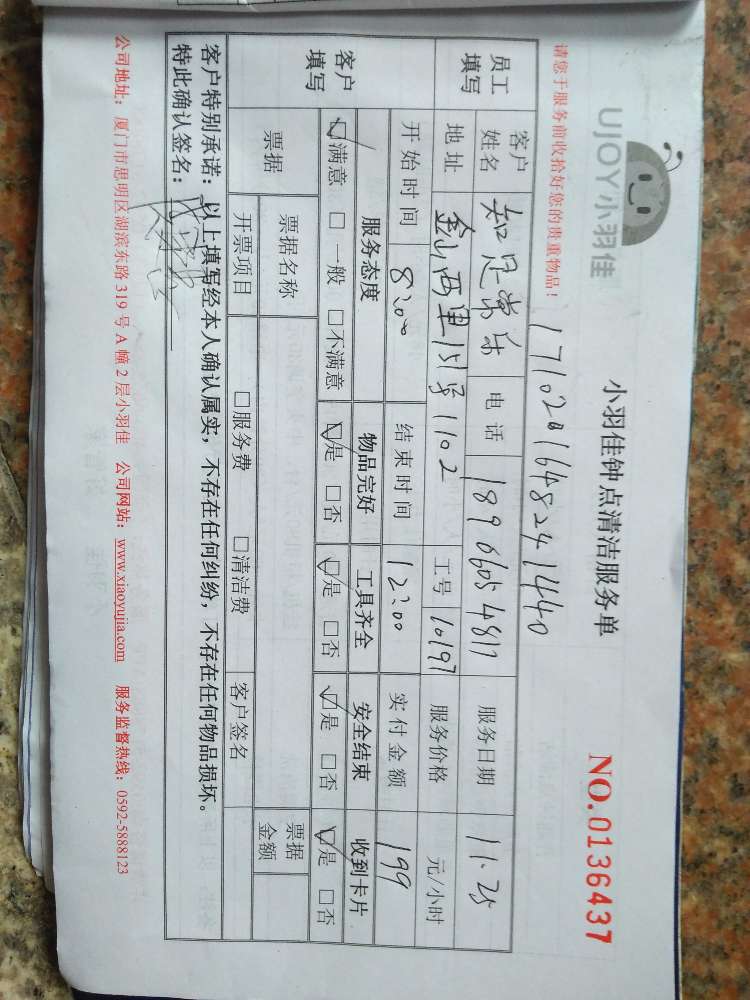 UJOY小羽佳
小羽佳钟点清洁服务单
NO.0136437
请您于服务前收拾好您的贵重物品！
171020164824 1440
员工填写 客户姓名 知足常乐 电话 18960654817 服务日期 11.25
地址 金山西里151号1102 工号 10197 服务价格 元/小时
开始时间 8:00 结束时间 12:00 实付金额 199
客户填写 服务态度 物品完好 工具齐全 安全结束 收到卡片
☑满意 □一般 □不满意 ☑是 □否 ☑是 □否 ☑是 □否 ☑是 □否
票据 票据名称 票据金额
开票项目 □服务费 □清洁费 客户签名
客户特别承诺：以上填写经本人确认属实，不存在任何纠纷，不存在任何物品损坏。
特此确认签名：
公司地址：厦门市思明区湖滨东路319号A幢2层小羽佳 公司网站：www.xiaoyujia.com 服务监督热线：0592-5888123